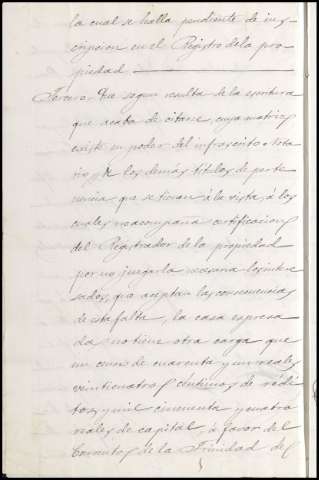 la cual se halla pendiente de ins-
cripcion en el Registro de la pro-
piedad
Tercero. Que segun resulta de la escritura
que acaba de citarse, cuya matriz
existe en poder del infrascrito Nota-
rio, y de los demás títulos de perte-
nencia, que se tienen á la vista, á los
cuales no acompaña certificacion
del Registrador de la propiedad
por no juzgarla necesaria los intere-
sados, que aceptan las consecuencias
de esta falta, la casa expresa-
da no tiene otra carga que
un censo de cuarenta y un reales
veinticuatro céntimos de rédi-
tos, y mil cincuenta y cuatro
reales de capital, á favor del
Convento de la Trinidad de